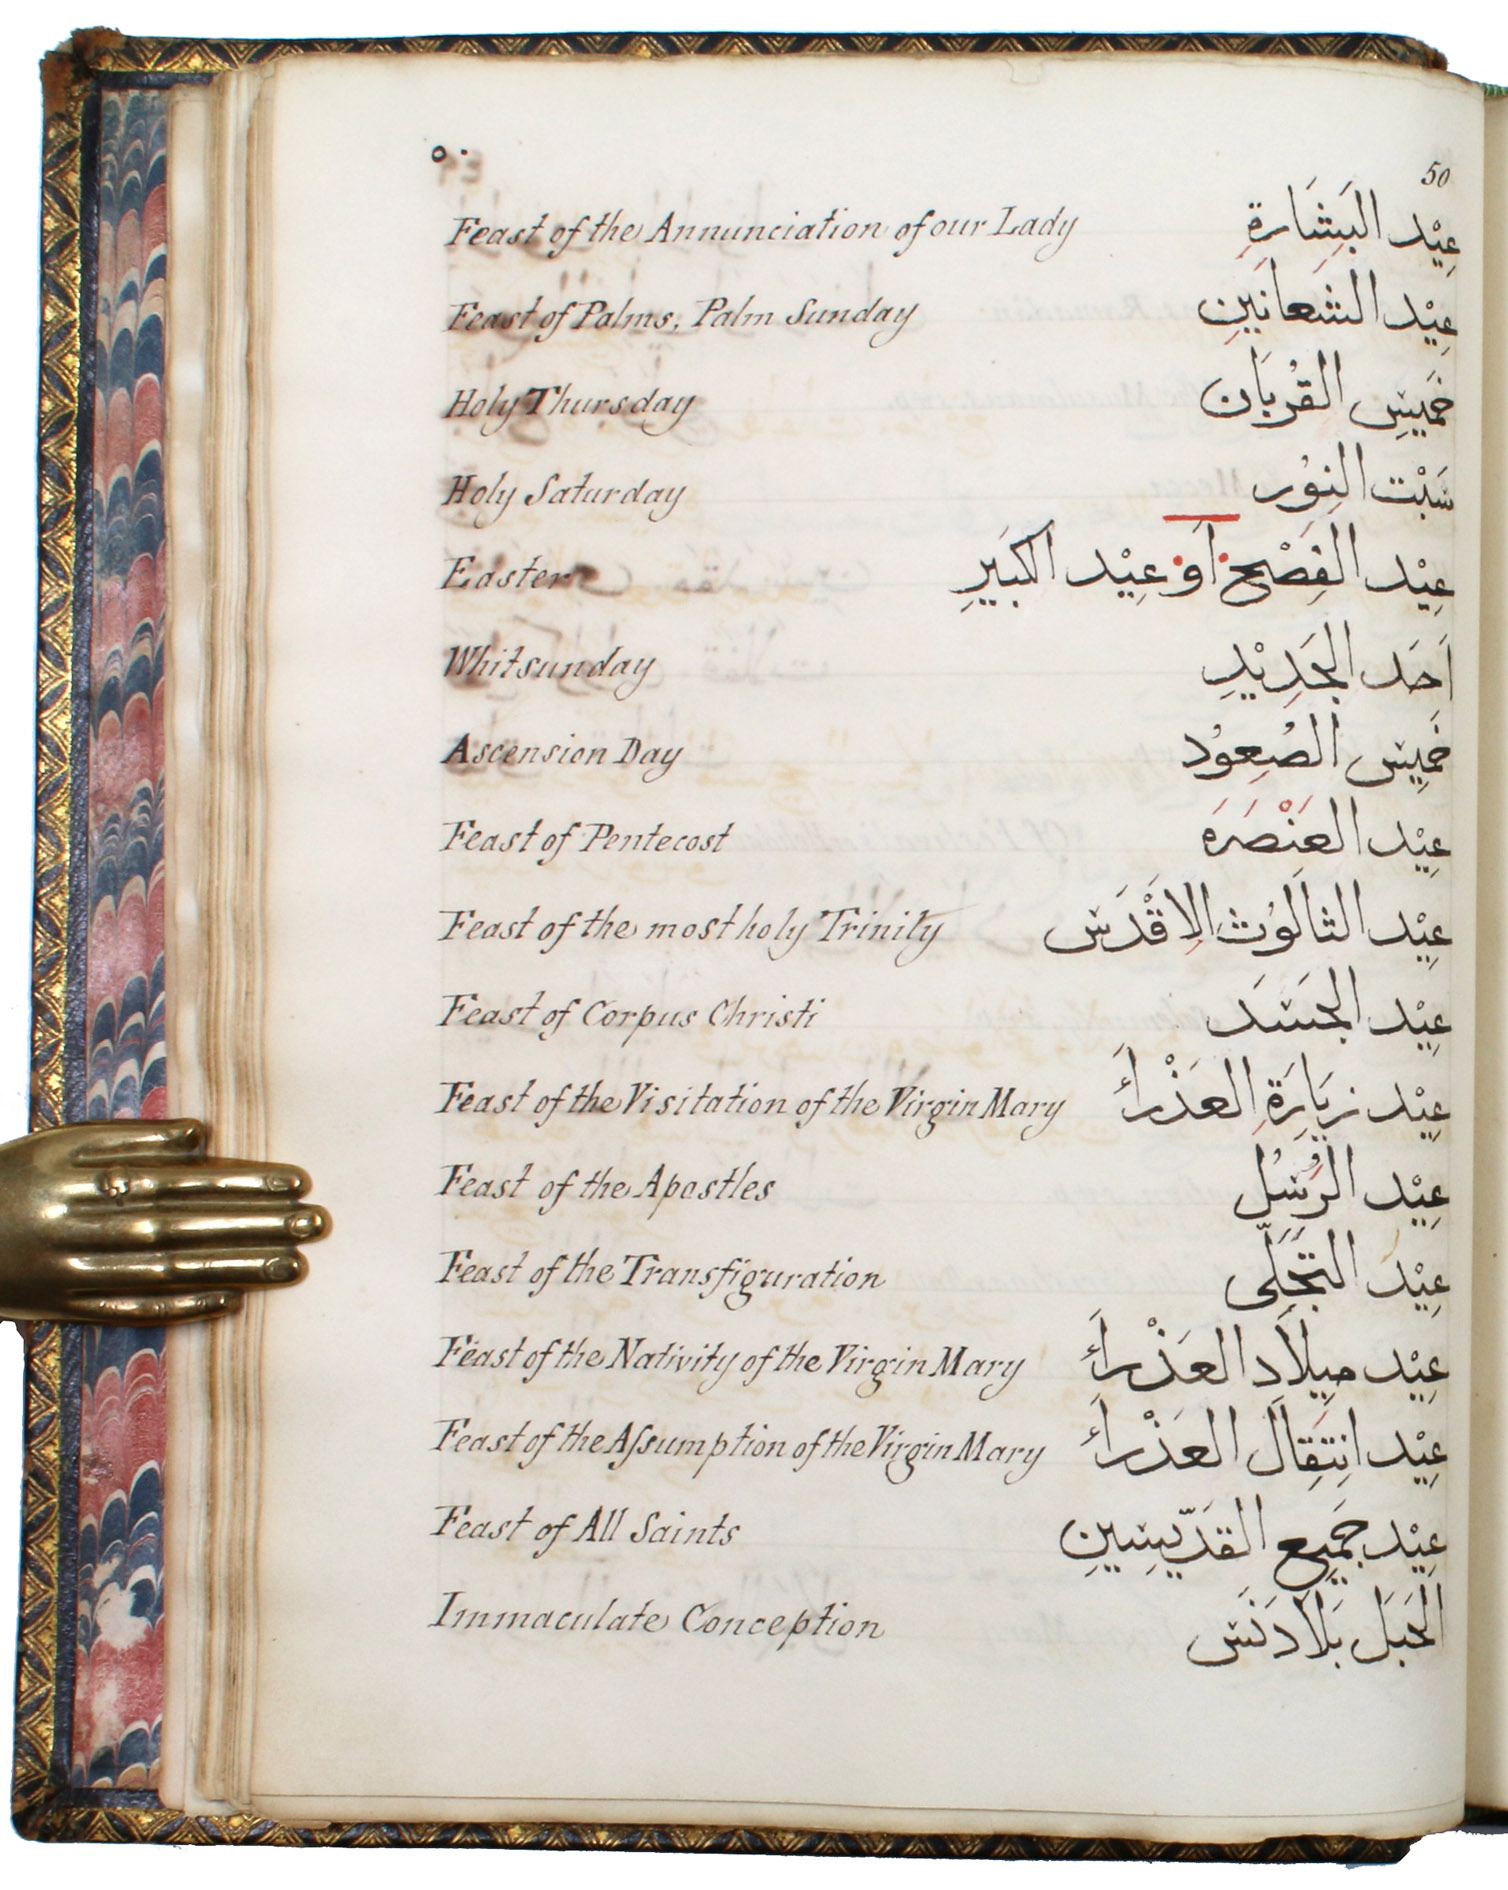 ٥٠ 50
Feast of the Annunciation of our Lady عِيْد البَشَارَةِ
Feast of Palms, Palm Sunday عِيْد الشَعانَيِن
Holy Thursday خَمِيسِ القُربَان
Holy Saturday سَبْت النُور
Easter عِيْد الفِصْح اَوْ عِيْد الكَبِيرِ
Whitsunday اَحَد الجَدِيْدِ
Ascension Day خَمِيس الصُعِوُد
Feast of Pentecost عِيْد العَنْصَرَه
Feast of the most holy Trinity عِيْد الثالوُث الاِقْدَس
Feast of Corpus Christi عِيْد الجَسَدَ
Feast of the Visitation of the Virgin Mary عِيْد زيَارَةِ العَذْرأَ
Feast of the Apostles عِيْد الرُسُل
Feast of the Transfiguration عِيْد التَجَلِّى
Feast of the Nativity of the Virgin Mary عِيْد مِيلاَد العَذْرأَ
Feast of the Aſsumption of the Virgin Mary عِيْد انِتِقِاَل العَذْرأَ
Feast of All Saints عِيْد جَمِيع القَدِّيسِينِ
Immaculate Conception الحَبَل بَلاَ دَنَس